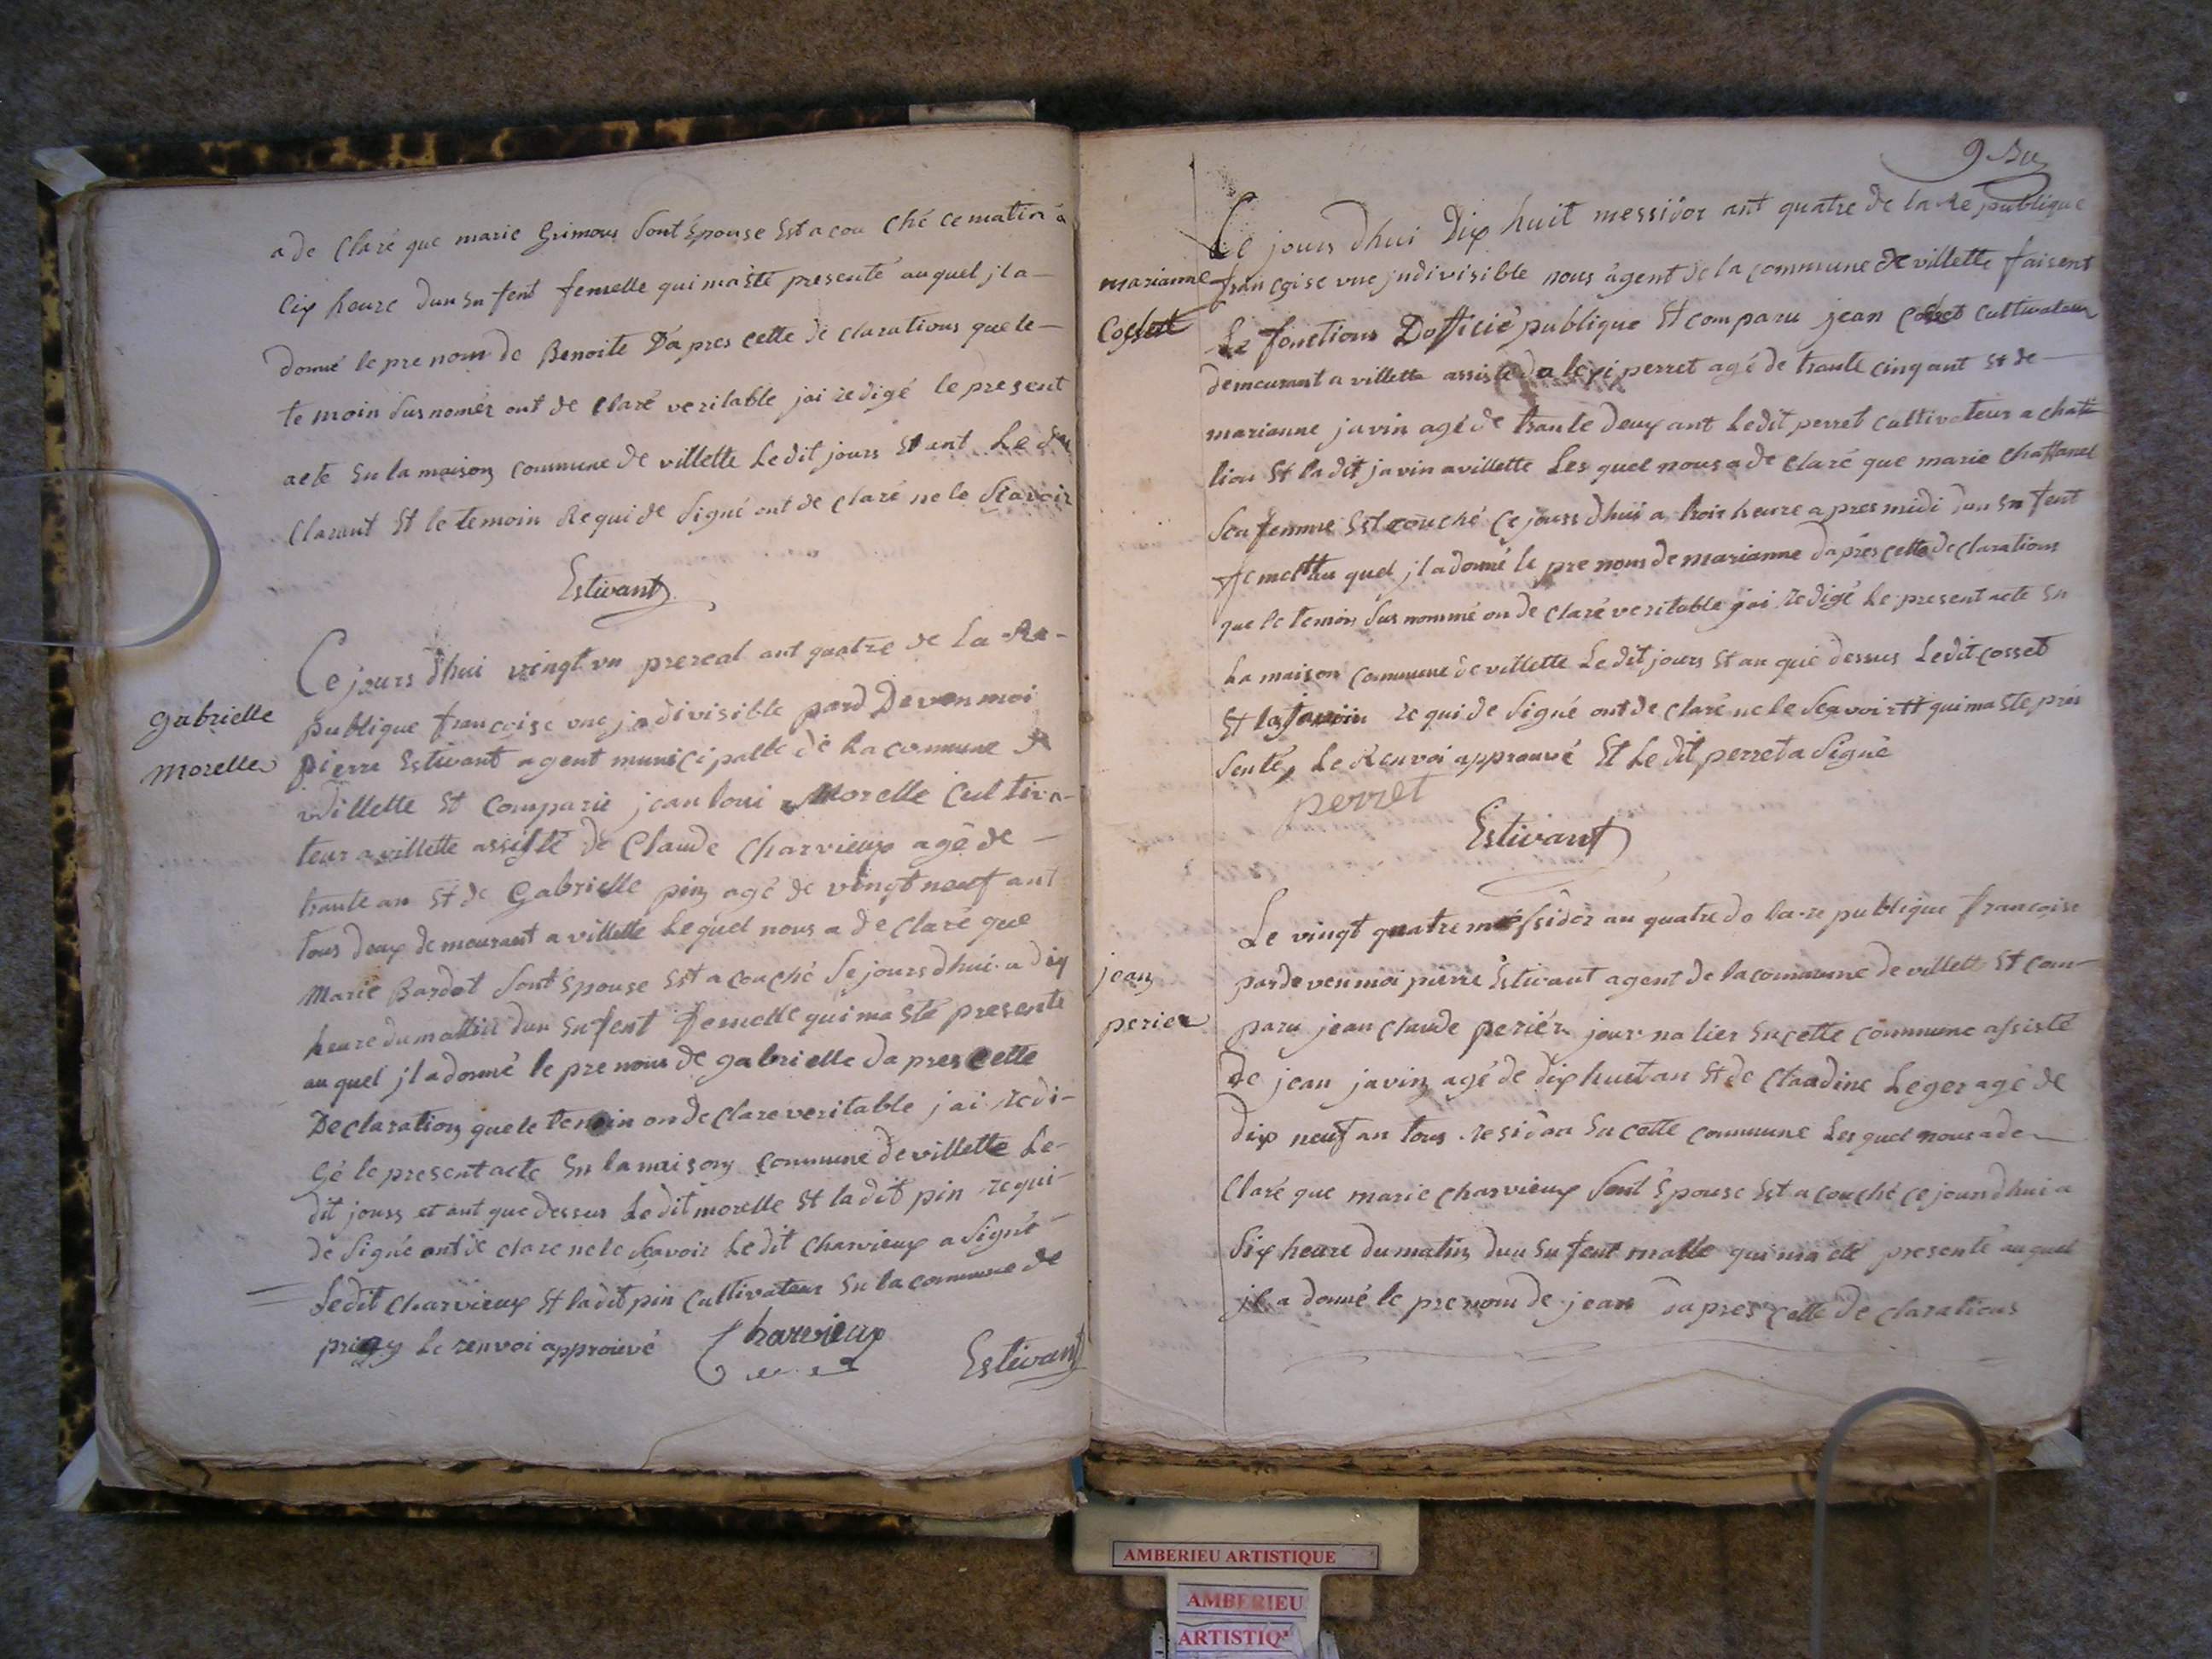 a de claré que marie Grimous sont épouse Est acou ché ce matin a
cix heure dun en fent femelle qui ma été presenté au quel jl a
donné le pre nom de Benoite D'apres cette de clarations que le
te moin sus nomér ont de claré veritable jai redigé le present
acte En la maison commune de villette Le dit jours Et ant Le de
clarant Et le temoin Requi de signé ont de claré ne le scavoir
Estivant
Ce jours dhui vingt un prereal ant quatre de la Re-
gabrielle
morelle
publique francoise une jndivisible pard Deven moi
pierre Estivant agent municipalle de La commune de
villette Et comparie jean loui Morelle cultiva-
teur a villette assisté de Claude charvieux agé de
trante an Et de Gabrielle pin agé de vingt neuf ant
tous deux demeurant a villette Lequel nous a de claré que
Marie Bardot sont Epouse Est a couché se jours dhui a dix
heure du mattin dun Enfent femelle qui ma Eté presente
au quel jl a donné le pre nom de gabrielle da pres cette
Declaration que le temoin on de clare veritable jai redi-
gé le present acte En la maison commune de villette Le-
dit jours et ant que dessus Le dit morelle Et la dit pin requi-
de signé ont de clare ne le scavoir Le dit charvieux a signé
= Ledit charvieux Et la dit pin cultivateur En la commune de
priay Le renvoi approuvé Charvieux
Estivant
9
Ce jours dhui Dix huit messidor ant quatre de la Re publique
marianne
Cosset
francoise une jndivisible nous agent de la commune de villette faisent
Le fonctions Dofficié publique Et comparu jean cosset cultivateur
demeurant a villette assisté da perret agé de trante cinq ant Et de
marianne javin agé de trante deux ant Le dit perret cultivateur a chati
lion Et la dit javin a villette Les quel nous a de claré que marie chaffanel
sea femme Est couché ce jours dhui a troir heure a pres midi dun en fent
femelle au quel jl a donné le pre nom de marianne da prés cette declarations
que le temoin sus nommé on de claré veritable jai redigé Le present acte En
La maison commune de villette Le dit jours Et an que dessus Le dit cosset
Et la javin re qui de signé ont de claré ne le scavoir # qui ma Eté pré
senté, Le Renvoi approuvé Et Le dit perret a signé
perret
Estivant
Le vingt quatre messidor an quatre de la re publique francoise
jean
perier
parde ven moi pierre Estivant agent de la commune de villette Et com-
paru jean claude periér jour na lier En cette commune assisté
De jean javin agé de dix huit an Et de claudine Leger agé de
dix neuf an tous residan En cette commune Les quel nous a de
claré que marie charvieux sont Epouse Est a couché ce jours dhui a
six heure du matin dun En fent malle qui ma eté presenté au quel
jl a donné le pre nom de jean da pres cette de clarations
AMBERIEU ARTISTIQUE
AMBERIEU
ARTISTIQ